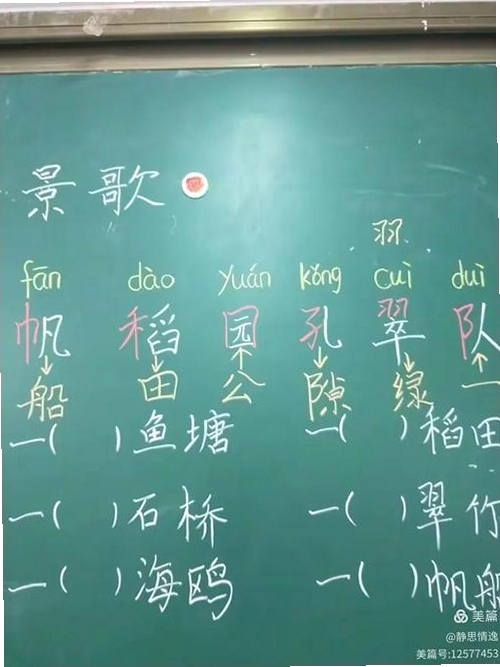 景歌
羽
fān dào yuán kǒng cuì duì
帆 稻 园 孔 翠 队
船 田 公 隙 绿 一
一( )鱼塘 一( )稻田
一( )石桥 一( )翠竹
一( )海鸥 一( )帆船
美篇
@静思情逸
美篇号:12577453